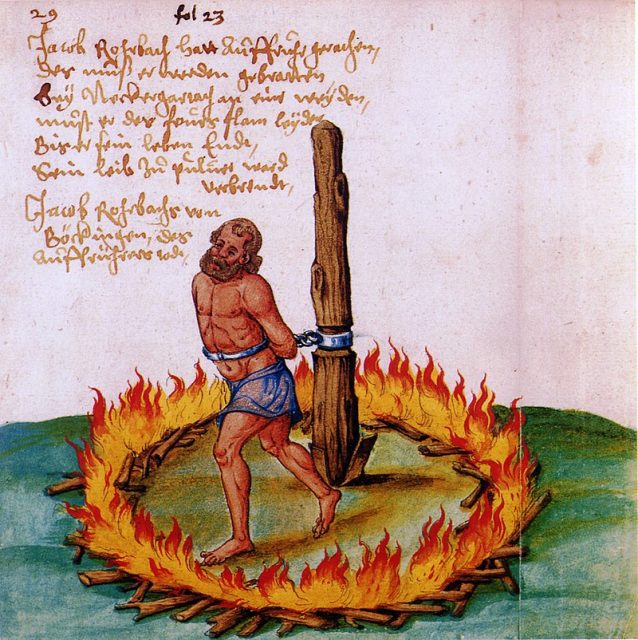 29 fol 23
Jacob Rohrbach hatt Auffruhr gerachen,
des muß er werden gebratten
Bey Neckergartach an eine weyden,
must er des feurs flam leyden
Bis er sein leben Endt,
Sein leib zu puluer ward
verbrendt,
Jacob Rohrbachs von
Böckingen, des
auffruhrers